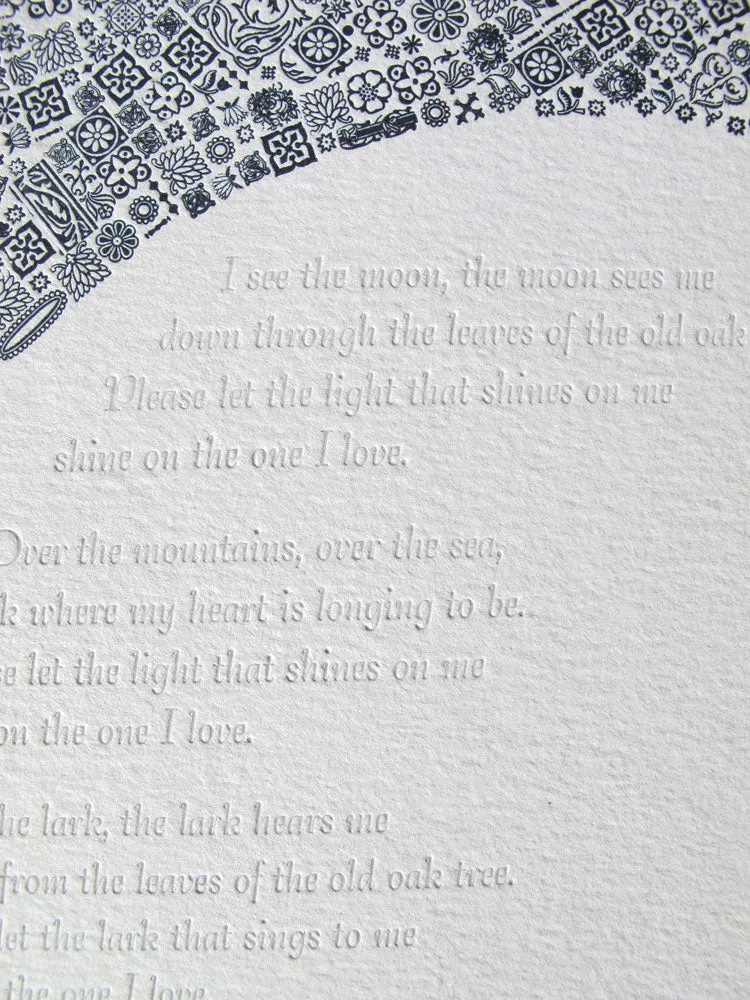 I see the moon, the moon sees me
down through the leaves of the old oak
Please let the light that shines on me
shine on the one I love.
Over the mountains, over the sea,
k where my heart is longing to be.
se let the light that shines on me
on the one I love.
he lark, the lark hears me
from the leaves of the old oak tree.
let the lark that sings to me
the one I love